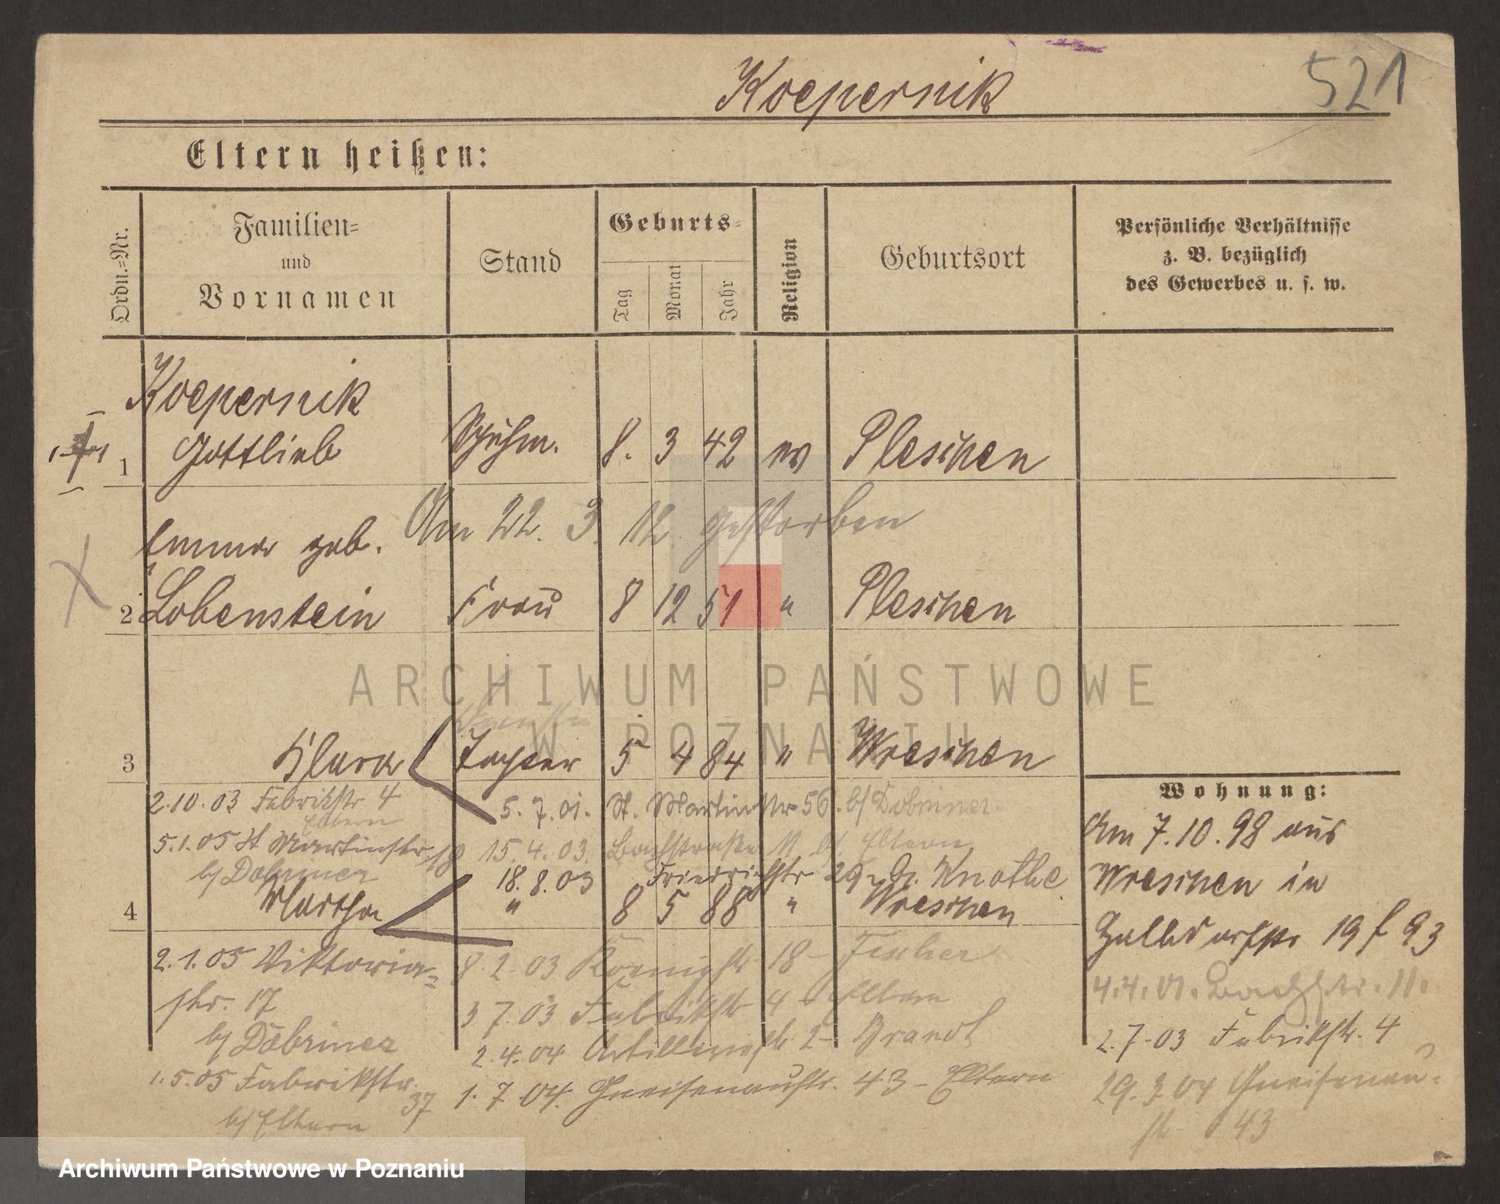 Koepernik
521
Eltern heißen:
Ordn.=Nr.
Familien=
und
Vornamen
Stand
Geburts=
Tag
Monat
Jahr
Religion
Geburtsort
Persönliche Verhältnisse
z. B. bezüglich
des Gewerbes u. s. w.
Koepernik
1 Gottlieb Schuhm. 8. 3 42 ev Pleschen
Am 22. 3. 12 gestorben
Emma geb.
2 Lobenstein Frau 8 12 51 " Pleschen
3 Klara Tochter 5 4 84 " Wreschen
2.10.03 Fabrikstr 4
Eltern
5.7.01. St. Martinstr 56. b/ Dobriner
5.1.05 St Martinstr 18
b/ Dobriner
15.4.03. Bachstraße 11 b/ Eltern
18.8.03 Friedrichstr 29 Knothe
4 Martha " 8 5 88 " Wreschen
2.1.05 Viktoria=
str. 17
b/ Dobriner
1.5.05 Fabrikstr.
37
b/ Eltern
8.2.03 Koenigstr 18 - Fischer
3 7.03 Fabrikstr 4 - Eltern
2.4.04 Artilleriestr 2 - Brandt
1.7.04. Gneisenaustr. 43 - Eltern
Wohnung:
Am 7.10.98 aus
Wreschen in
19 f 93
4.4.01. Bachstr. 11.
2.7.03 Fabrikstr. 4
29.3.04 Gneisenau-
str 43
ARCHIWUM PAŃSTWOWE
W POZNANIU
Archiwum Państwowe w Poznaniu